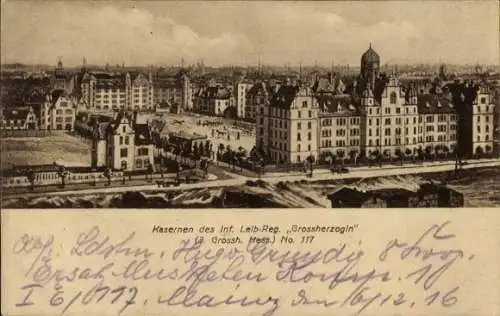 Kasernen des Inf. Leib-Reg. „Grossherzogin"
(3. Grossh. Hess.) No. 117
Abs. Ldstm. Hugo
Ersatz Musketen Komp.
I E/6 117, Mainz den 16/12. 16